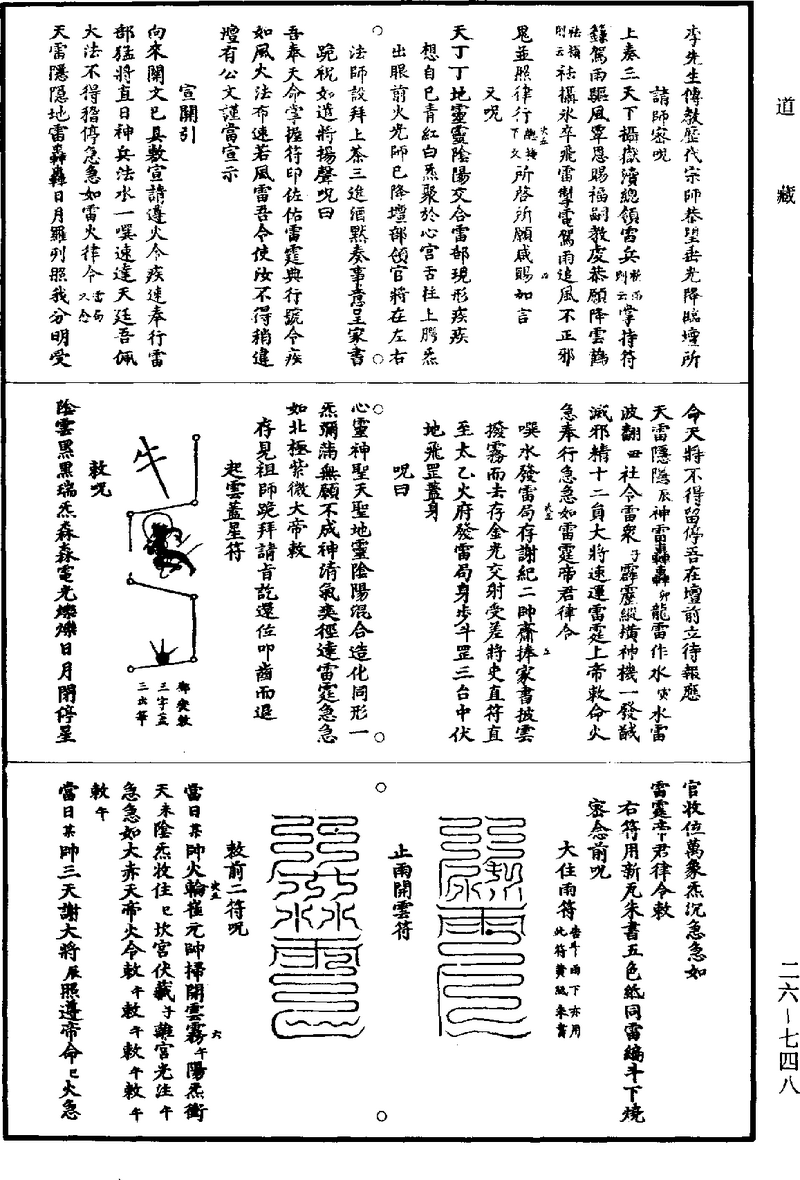 道藏
李先生傳教歷代宗師恭望垂光降臨壇所
請師密呪
上奏三天下攝嶽瀆總領雷兵祈雨則云掌持符
籙駕雨驅風覃恩賜福嗣教處恭願降雲鶴
祛禳則云祛攝水卒飛雷掣電駕雨追風不正邪
鬼並照律行下久所啓所願咸賜如言
又呪
天丁丁地靈靈陰陽交合雷部現形疾疾
想自己青紅白炁聚於心宮舌柱上腭炁
出眼前火光師已降壇部領官將在左右
法師設拜上茶三進酒默奏事意呈家書
跪祝如造將揚聲呪曰
吾奉天命掌握符印佐佑雷霆興行號令疾
如風火法布速若風雷吾令使汝不得稍違
壇有公文謹當宣示
宣關引
向來關文已具敷宣請遵火令疾速奉行雷
部猛將直日神兵法水一噀速達天廷吾佩
大法不得稽停急急如雷火律令雷局又念
天雷隱隱地雷轟轟日月羅列照我分明受
命天將不得留停吾在壇前立待報應
天雷隱隱辰神雷轟轟卯龍雷作水寅水雷
波翻丑社令雷衆子霹靂縱橫神機一發馘
滅邪精十二員大將速運雷霆上帝敕命火
急奉行急急如雷霆帝君律令
噀水發雷局存謝紀二帥齎捧家書披雲
撥霧而去存金光交射受差將吏直符直
至太乙火府發雷局身步斗罡三台中伏
地飛罡蓋身
呪曰
心靈神聖天聖地靈陰陽混合造化同形一
炁彌滿無願不成神清氣爽徑達雷霆急急
如北極紫微大帝敕
存見祖師跪拜請旨訖還位叩齒而退
起雲蓋星符
三字蓋
敕呪
陰雲黑黑瑞炁森森電光爍爍日月閉停星
官收位萬象炁沉急急如
雷霆帝君律令敕
右符用新瓦朱書五色紙同雷縞斗下燒
密念前呪
大住雨符
此符黃紙朱書
止雨開雲符
敕前二符呪
當日某帥火輪崔元帥掃開雲霧午陽炁衝
天未陰炁收住巳坎宮伏藏子離宮光注午
急急如大赤天帝火令敕午敕午敕午敕午
敕午
當日某帥三天謝大將辰照遵帝命巳火急
二六-七四八